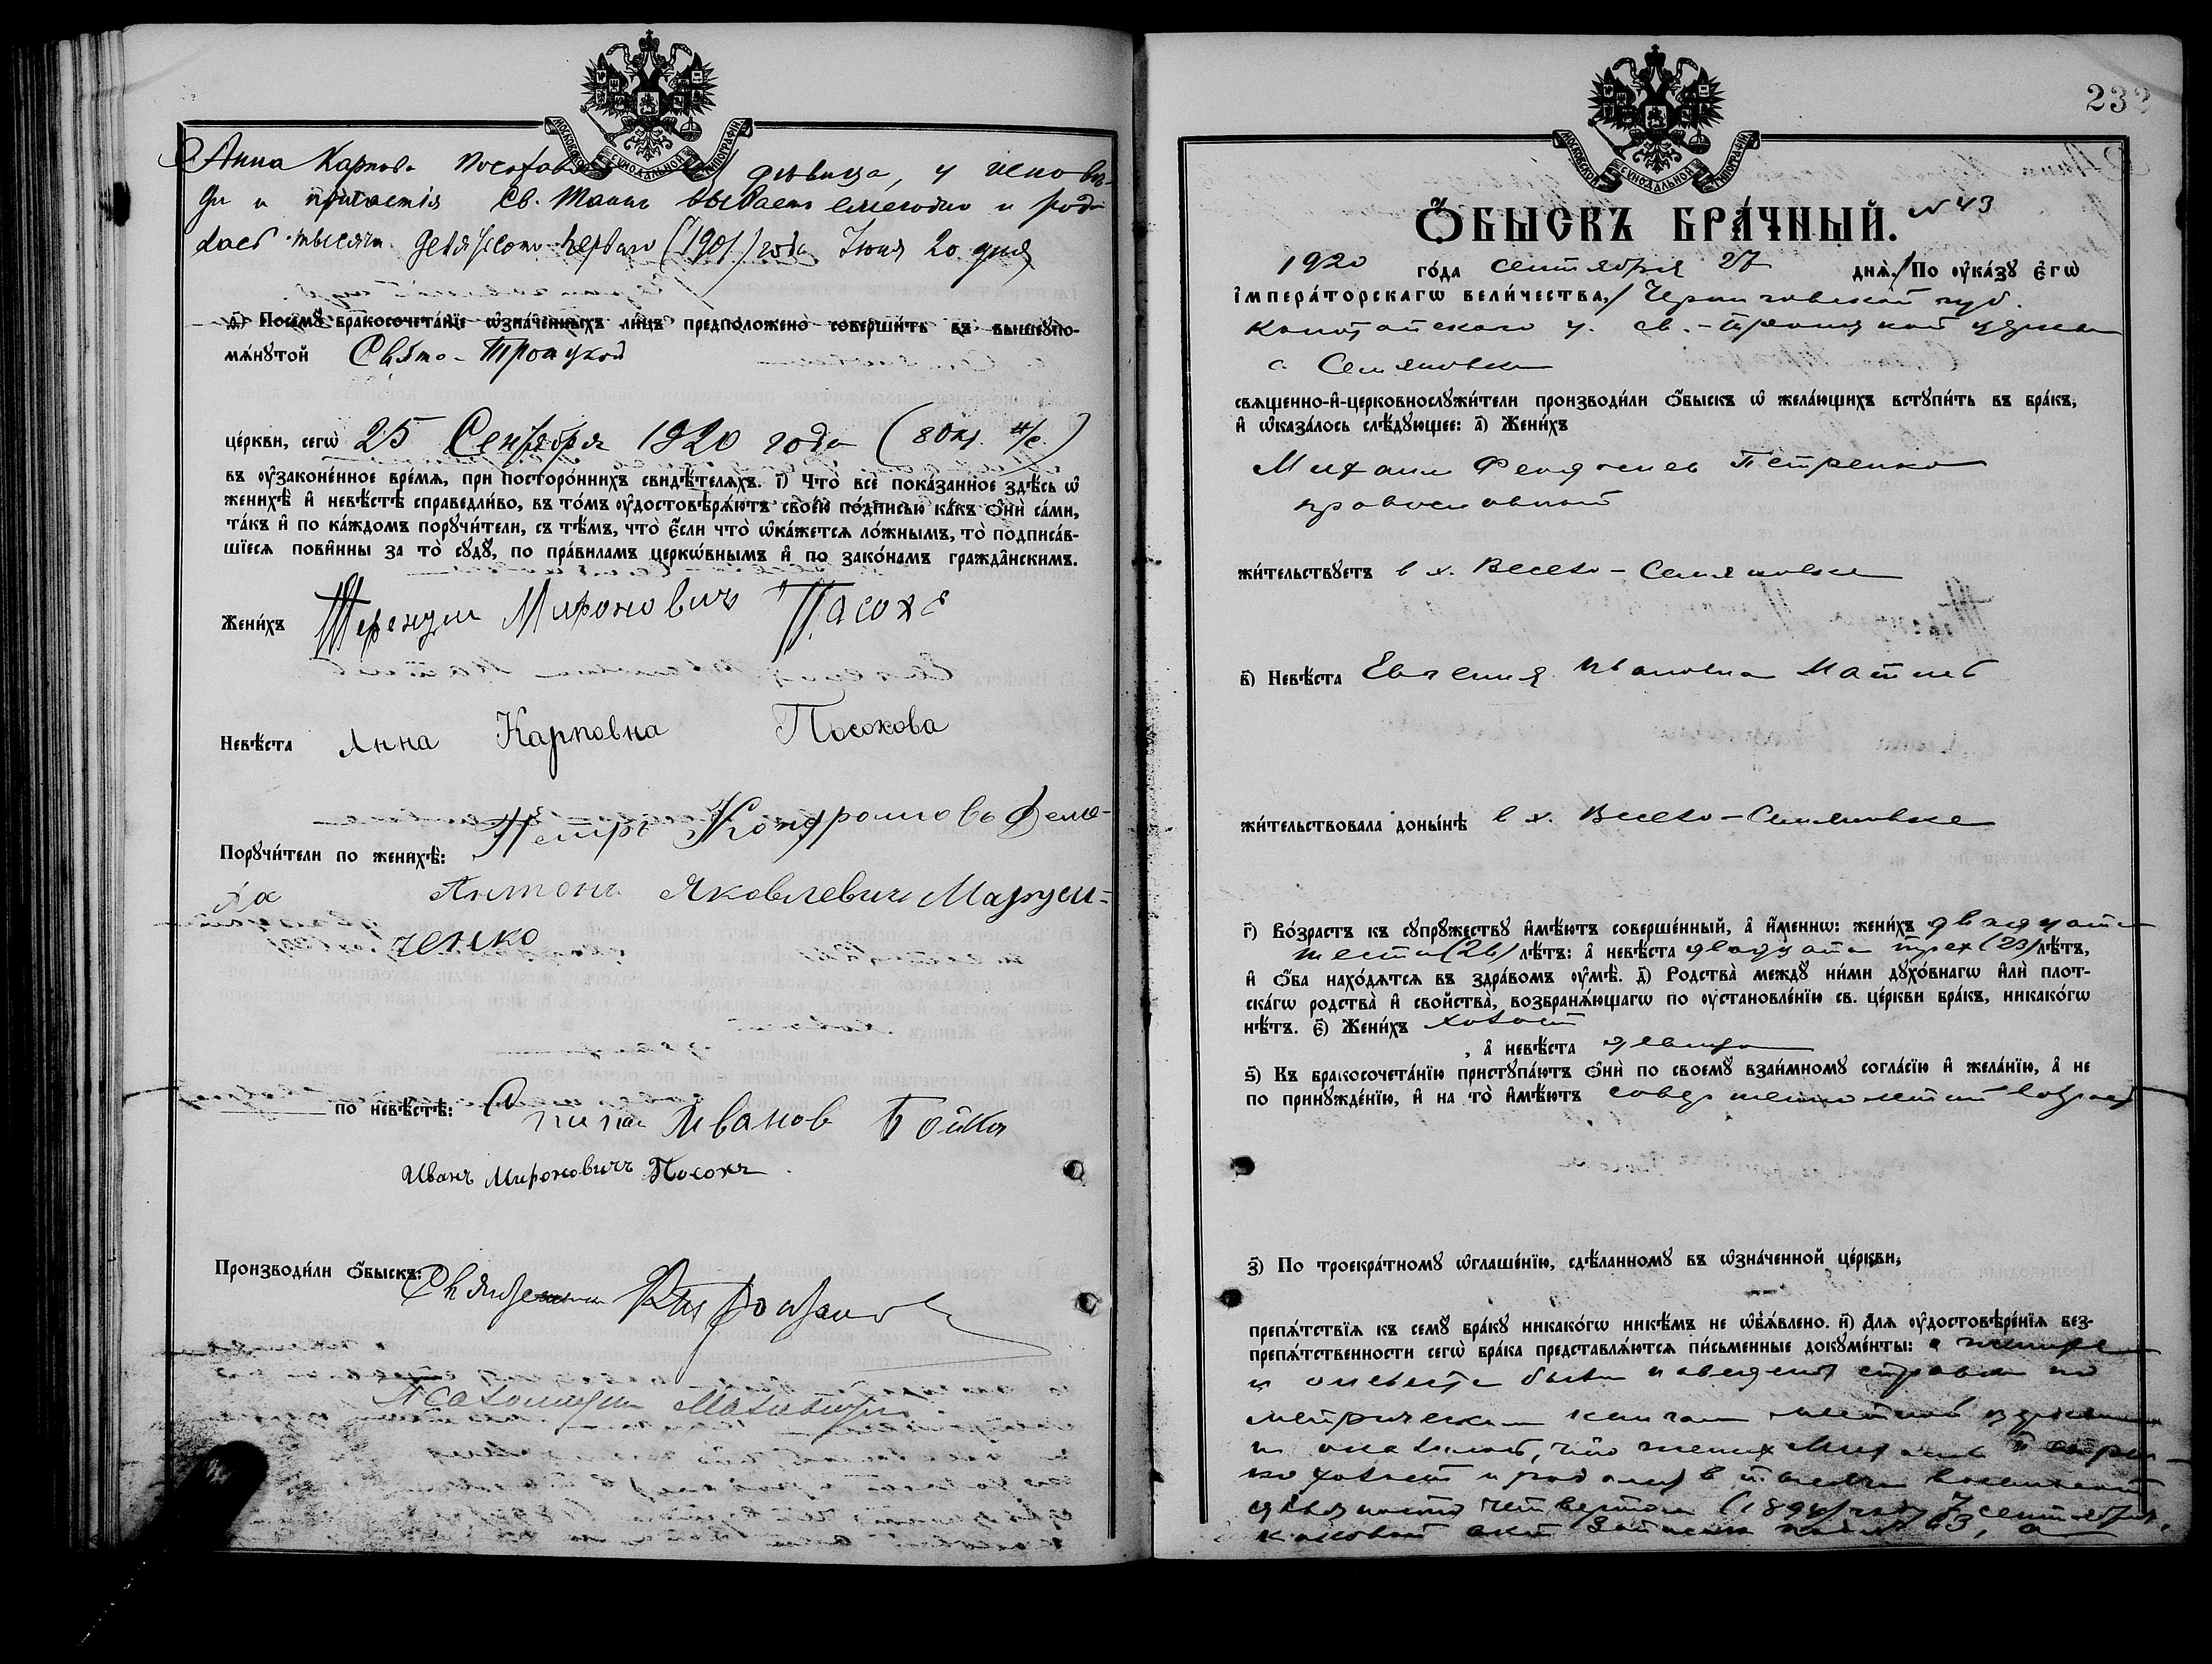 МОСКОВСКОЙ СѴНОДАЛЬНОЙ ТИПОГРАФІИ
Анна Карпова Посохова девица, у испове-
ди и причастія Св. Таинъ бываетъ ежегодно и роди-
лась тысяча девятьсотъ перваго (1901) года Іюня 20 дня
д҃і) Посемꙋ̀ бракосочета́нїе ѡ҆зна́ченныхъ лицъ предположено̀ соверши́ть въ вышеꙋпо-
мѧ́нꙋтой Свято-Троицкой
це́ркви, сегѡ̀ 25 Сентября 1920 года (8 окт. н/с.)
въ ᲂу҆зако́не́нное вре́мѧ, при посторо́ннихъ свидѣ́телѧхъ. і҃) Что̀ всѐ пока́занное здѣ́сь ѡ҆
женихѣ̀ и҆ невѣ́стѣ справедли́во, въ то́мъ ᲂу҆достовѣрѧ́ютъ свое́ю по́дписью ка́къ ѻ҆нѝ са́ми,
та́къ и҆ по ка́ждомъ порꙋчи́тели, съ тѣ́мъ, что̀ є҆́сли что̀ ѡ҆ка́жетсѧ ло́жнымъ, то̀ подписа́в-
шїесѧ пови́нны за то̀ сꙋдꙋ̀, по пра́виламъ церкѡ́внымъ и҆ по зако́намъ гражда́нскимъ.
Жени́хъ Терентий Миронович Пасохъ
Невѣ́ста Анна Карповна Посохова
Порꙋчи́тели по женихѣ̀: Петръ Кондратовъ
Антонъ Яковлевичъ Марущ-
ченко
по невѣ́стѣ: Иванов Бойко
Иванъ Мироновичъ Посохъ
Производи́ли ѻ҆́быскъ: Священникъ
Псаломщикъ
232
МОСКОВСКОЙ СѴНОДАЛЬНОЙ ТИПОГРАФІИ
Ѻ҆́БЫСКЪ БРА́ЧНЫЙ. №43
1920 го́да сентября 27 днѧ̀./По ᲂу҆ка́зꙋ є҆гѡ̀
і҆мпера́торскагѡ вели́чества,/ Черниговской губ.
Конотопскаго у. св.-Троицкой церкви
с. Семяновки
свѧщенно-и҆-церковнослꙋжи́тели производи́ли ѻ҆́быскъ ѡ҆ жела́ющихъ встꙋпи́ть въ бра́къ,
и҆ ѡ҆каза́лось слѣ́дꙋющее: а҃) Жени́хъ
Михаил Петренко
православный
жи́тельствꙋетъ в х. Весело-Семяновке
в҃) Невѣ́ста Евгения Ивановна
жи́тельствовала доны́нѣ в х. Весело-Семяновке
г҃) Во́зрастъ къ сꙋпрꙋ́жествꙋ и҆мѣ́ютъ соверше́нный, а҆ и҆́меннѡ: жени́хъ двадцати
шести (26) лѣ́тъ: а҆ невѣ́ста двадцати трех (23) лѣ́тъ,
и҆ ѻ҆́ба нахо́дѧтсѧ въ здра́вомъ ᲂу҆мѣ̀. д҃) Родства̀ междꙋ̀ ни́ми дꙋхо́внагѡ и҆лѝ плот-
ска́гѡ родства̀ и҆ свойства̀, возбранѧ́ющагѡ по ᲂу҆становле́нїю св. це́ркви бра́къ, никако́гѡ
нѣ́тъ. є҃) Жени́хъ холост
, а҆ невѣ́ста девица
ѕ҃) Къ бракосочета́нїю пристꙋпа́ютъ ѻ҆нѝ по своемꙋ̀ взаи́мномꙋ согла́сїю и҆ жела́нїю, а҆ не
по принꙋжде́нїю, и҆ на то̀ и҆мѣ́ютъ совершеннолетний возраст
з҃) По троекра́тномꙋ ѡ҆глаше́нїю, сдѣ́ланномꙋ въ ѡ҆зна́ченной це́ркви,
препѧ́тствїѧ къ семꙋ̀ бра́кꙋ никако́гѡ никѣ́мъ не ѡ҆б̾ѧ́влено. и҃) Длѧ ᲂу҆достовѣре́нїѧ без-
препѧ́тственности сегѡ̀ бра́ка представлѧ́ютсѧ пи́сьменные докꙋме́нты: о женихе
и о невесте были наведены справки по
метрическим книгам местной церкви
и оказалось, что жених Михаил Петрен-
ко холост и родился в тысяча восемьсот
девяносто четвертом (1894) году 7 сентября,
каковой акт записан под № 63, а